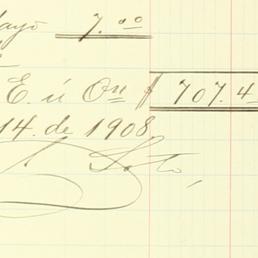 Mayo 7.00
E. ú On $ 707.4
14. de 1908
Soto,